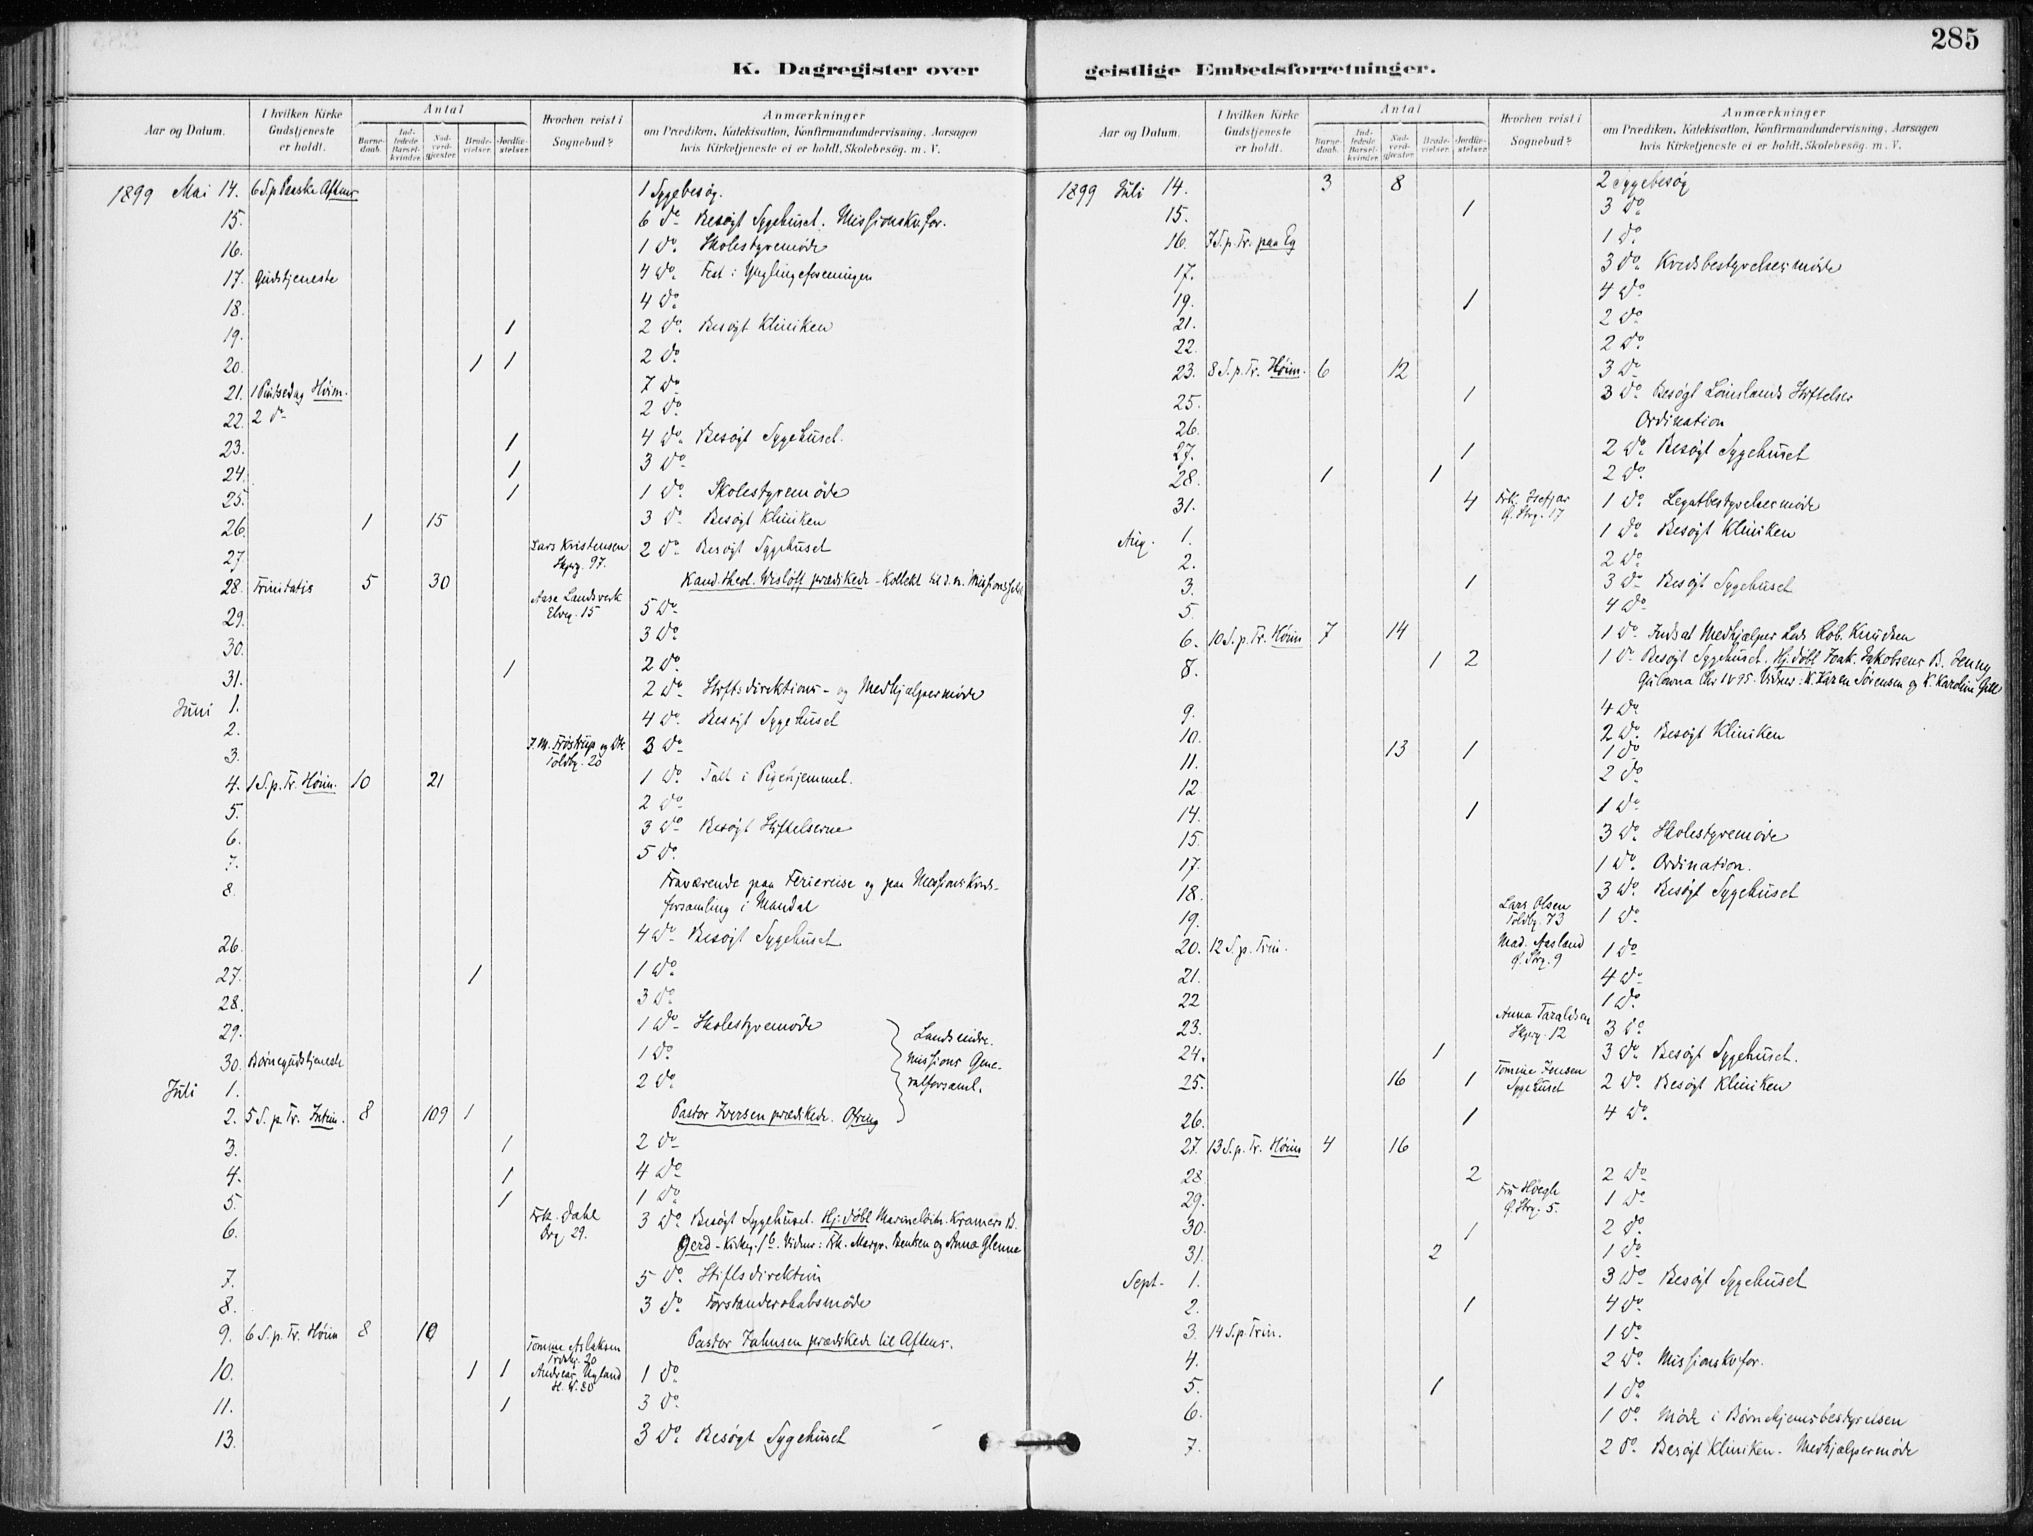 285
K. Dagregister over geistlige Embedsforretninger.
Aar og Datum. I hvilken Kirke Gudstjeneste er holdt. Antal Barnedaab. Indledede Barselkvinder. Nadverdgjester. Brudevielser. Jordfæstelser. Hvorhen reist i Sognebud? Anmærkninger om Prædiken, Katekisation, Konfirmandundervisning, Aarsagen hvis Kirketjeneste ei er holdt, Skolebesøg, m. V.
1899 Mai 14. 6 S p Paaske Aftens 1 Sygebesøg.
15. 6 do Besøgt Sygehuset. Missionskv.for.
16. 1 do Skolestyremøde
17. Gudstjeneste 4 do Fest i Ynglingeforeningen
18. 4 do
19. 1 2 do Besøgt Kliniken
20. 1 1 2 do
21. 1 Pintsedag Høim. 7 do
22. 2 do 2 do
23. 1 4 do Besøgt Sygehuset.
24. 1 3 do
25. 1 1 do Skolestyremøde
26. 1 15 3 do Besøgt Kliniken
27. Lars Kristensen Skprg. 97. 2 do Besøgt Sygehuset
28. Trinitatis 5 30 Kand. theol. Wisløff prædikede - Kollekt til d. n. Missionsselsk
29. Aase Landsverk Elveg. 15 5 do
30. 3 do
31. 1 2 do
Juni 1. 2 do Stiftsdirektions- og Medhjælpermøde
2. 4 do Besøgt Sygehuset
3. J. M. Frøstrup og Dtr Toldbg. 20 3 do
4. 1 S. p. Tr. Høim. 10 21 1 do Talt i Pigehjemmet.
5. 2 do
6. 3 do Besøgt Stiftelserne
7. 5 do
8. Fraværende paa Feriereise og paa Missions Kreds-
forsamling i Mandal
26. 4 do Besøgt Sygehuset
27. 1 1 do
28. 3 do
29. 1 do Skolestyremøde Landsindre-
30. Børnegudstjeneste 1 do missions Gene-
Juli 1. 2 do ralforsaml.
2. 5 S. p. Tr. Intim. 8 109 1 Pastor Iversen prædikede. Ofring
3. 1 2 do
4. 1 4 do
5. 1 1 do
6. Frk. Dahl Drg 29. 3 do Besøgt Sygehuset. Hj. døbt Marineløitn. Kramers B.
Gerd - Kirkeg. 1b. Vidner: Frk. Margr. Bentzen og Anna Glenne
7. 5 do Stiftsdirektion
8. 3 do Forstanderskabsmøde
9. 6 S. p. Tr. Høim 8 10 Tomine Aslaksen 20 Pastor Jahnsen prædikede til Aftens.
10. 1 1 Andreas Ugland 1 do
11. 1 3 do
13. 3 do Besøgt Sygehuset
Aar og Datum. I hvilken Kirke Gudstjeneste er holdt. Antal Barnedaab. Indledede Barselkvinder. Nadverdgjester. Brudevielser. Jordfæstelser. Hvorhen reist i Sognebud? Anmærkninger om Prædiken, Katekisation, Konfirmandundervisning, Aarsagen hvis Kirketjeneste ei er holdt, Skolebesøg, m. V.
1899 Juli 14. 3 8 2 Sygebesøg
15. 1 3 do
16. 7 S. p. Tr. paa Eg 1 do
17. 3 do Kredsbestyrelsesmøde
19. 1 4 do
21. 2 do
22. 2 do
23. 8 S. p. Tr. Høim. 6 12 3 do
25. 1 3 do Besøgt Lømslands Stiftelser
26. Ordination
27. 1 2 do Besøgt Sygehuset
28. 1 1 2 do
31. 4 Ø. Strg. 17 1 do Legatbestyrelsesmøde
Aug. 1. 1 do Besøgt Kliniken
2. 2 do
3. 1 3 do Besøgt Sygehuset
5. 4 do
6. 10 S. p. Tr. Høim 7 14 1 do Indsat Medhjælper Lods Rob. Knudsen
8. 1 2 1 do Besøgt Sygehuset. Hj. døbt Joak. Jakobsens B. Jenny
Chr 1895. Vidner: K. Karen Sørensen og K. Karoline Gill
9. 4 do
10. 2 do Besøgt Kliniken
11. 13 1 1 do
12. 2 do
14. 1 1 do
15. 3 do Skolestyremøde
17. 1 do Ordination.
18. 3 do Besøgt Sygehuset
19. Lars Olsen Toldbg. 73 1 do
20. 12 S. p. Trin. Mad. Aasland Ø. Strg. 9 1 do
21. 4 do
22 1 do
23. Anna Taraldsen Skprg. 12 3 do
24. 1 3 do Besøgt Sygehuset.
25. 16 1 Tomine Jensen Sygehuset 2 do Besøgt Kliniken
26. 1 4 do
27. 13 S. p. Tr. Høim 4 16
28 2 2 do
29. Fru Høegh Ø. Strg. 5. 1 do
30. 1 2 do
31. 2 1 do
Sept. 1. 3 do Besøgt Sygehuset
2. 1 4 do
3. 14 S. p. Trin. 1 do
4. 2 do Missionskvfor.
5. 1 1 do
6. 1 do Møde i Børnehjemsbestyrelsen
7. 2 do Besøgt Kliniken - Medhjælpermøde